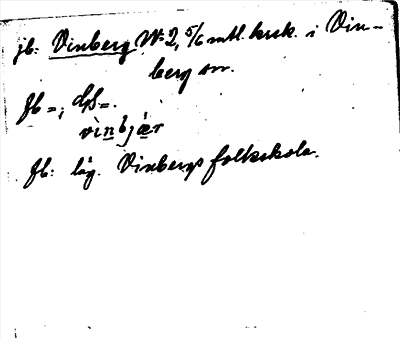 jb: Vinberg No 2, 5/6 mtl. krsk. i Vin-
berg sn.
fb =; ds =.
vinbjær
fb: låg. Vinbergs folkskola.